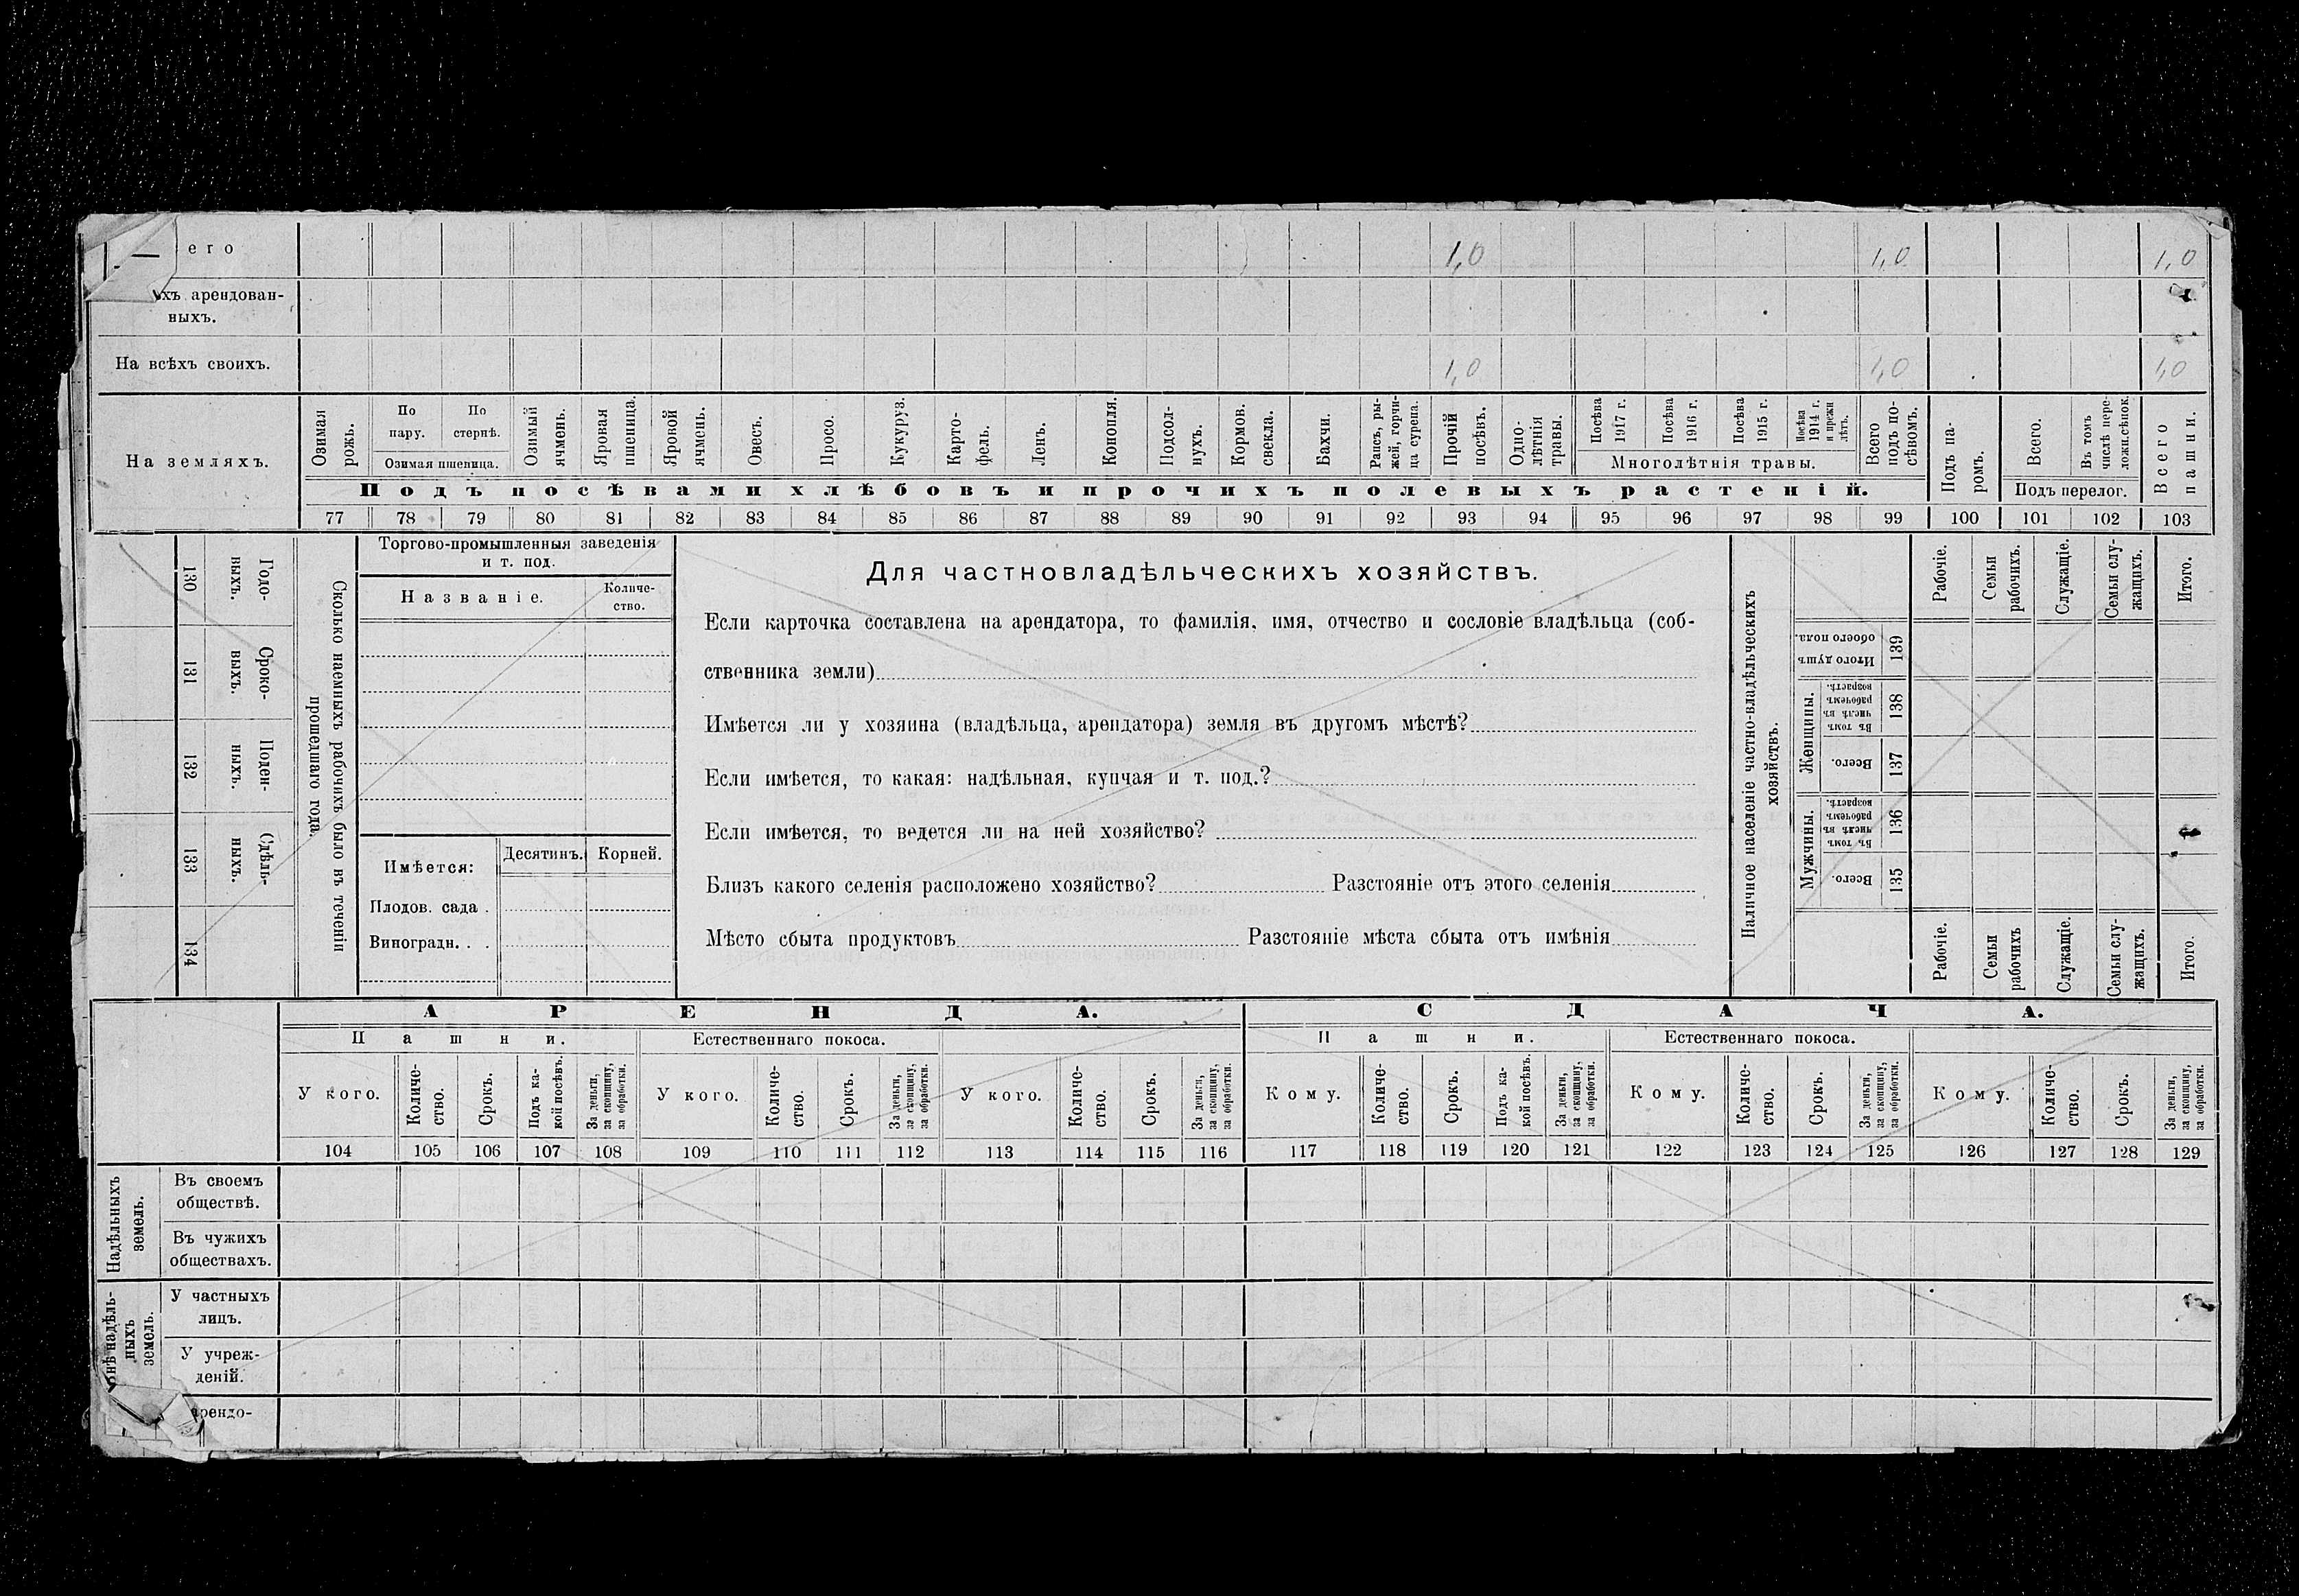 его 1,0 1,0 1,0
хъ арендован-
ныхъ.
На всѣхъ своихъ. 1,0 1,0 1,0
На земляхъ.
Озимая рожь.
По пару.
По стернѣ.
Озимая пшеница.
Озимый ячмень.
Яровая пшеница.
Яровой ячмень.
Овесъ.
Просо.
Кукуруз.
Карто-
фель.
Ленъ.
Конопля.
Подсол-
нухъ.
Кормов. свекла.
Бахчи.
Рапсъ, ры-
жей, горчи-
ца сурепа.
Прочій посѣвъ.
Одно-
лѣтнія травы.
Посѣва 1917 г.
Посѣва 1916 г.
Посѣва 1915 г.
Посѣва 1914 г. и прежн лѣтъ.
Многолѣтнія травы.
Всего подъ по-
сѣвомъ.
Подъ па-
ромъ.
Всего.
Въ томъ числѣ пере-
ложн.сѣнок.
Подъ перелог.
Всего пашни.
Подъ посѣвами хлѣбовъ и прочихъ полевыхъ растеній.
77 78 79 80 81 82 83 84 85 86 87 88 89 90 91 92 93 94 95 96 97 98 99 100 101 102 103
130 Годо-
выхъ.
131 Сроко-
выхъ.
132 Поден-
ныхъ.
133 Сдѣль-
ныхъ.
134
Сколько наемныхъ рабочихъ было въ теченіи
прошедшаго года.
Торгово-промышленныя заведенія
и т. под.
Названіе.
Количе-
ство.
Имѣется:
Десятинъ. Корней.
Плодов. сада .
Виноградн. . .
Для частновладѣльческихъ хозяйствъ.
Если карточка составлена на арендатора, то фамилія, имя, отчество и сословіе владѣльца (соб-
ственника земли)
Имѣется ли у хозяина (владѣльца, арендатора) земля въ другомъ мѣстѣ?
Если имѣется, то какая: надѣльная, купчая и т. под.?
Если имѣется, то ведется ли на ней хозяйство?
Близъ какого селенія расположено хозяйство? Разстояніе отъ этого селенія
Мѣсто сбыта продуктовъ Разстояніе мѣста сбыта отъ имѣнія
Наличное населеніе частно-владѣльческихъ
хозяйствъ.
Рабочіе.
Семьи рабочихъ.
Служащіе.
Семьи слу-
жащихъ.
Итого.
Итого душъ обоего пола. 139
Женщины.
Въ томъ числѣ въ рабочемъ возрастѣ. 138
Всего. 137
Мужчины.
Въ томъ числѣ въ рабочемъ возрастѣ. 136
Всего. 135
Рабочіе.
Семьи рабочихъ
Служащіе.
Семьи слу-
жащихъ.
Итого.
АРЕНДА. СДАЧА.
Пашни. Естественнаго покоса. Пашни. Естественнаго покоса.
У кого.
Количе-
ство.
Срокъ.
Подъ ка-
кой посѣвъ.
За деньги, за скопщину, за обработки.
У кого.
Количе-
ство.
Срокъ.
За деньги, за скопщину, за обработки.
У кого.
Количе-
ство.
Срокъ.
За деньги, за скопщину, за обработки.
Кому.
Количе-
ство.
Срокъ.
Подъ ка-
кой посѣвъ.
За деньги, за скопщину, за обработки.
Кому.
Количе-
ство.
Срокъ.
За деньги, за скопщину, за обработки.
Кому.
Количе-
ство.
Срокъ.
За деньги, за скопщину, за обработки.
104 105 106 107 108 109 110 111 112 113 114 115 116 117 118 119 120 121 122 123 124 125 126 127 128 129
Надѣльныхъ земель.
Въ своемъ
обществѣ.
Въ чужихъ
обществахъ.
онѣ надѣль-
ныхъ
земель.
У частныхъ
лицъ.
У учреж-
деній.
арендо-